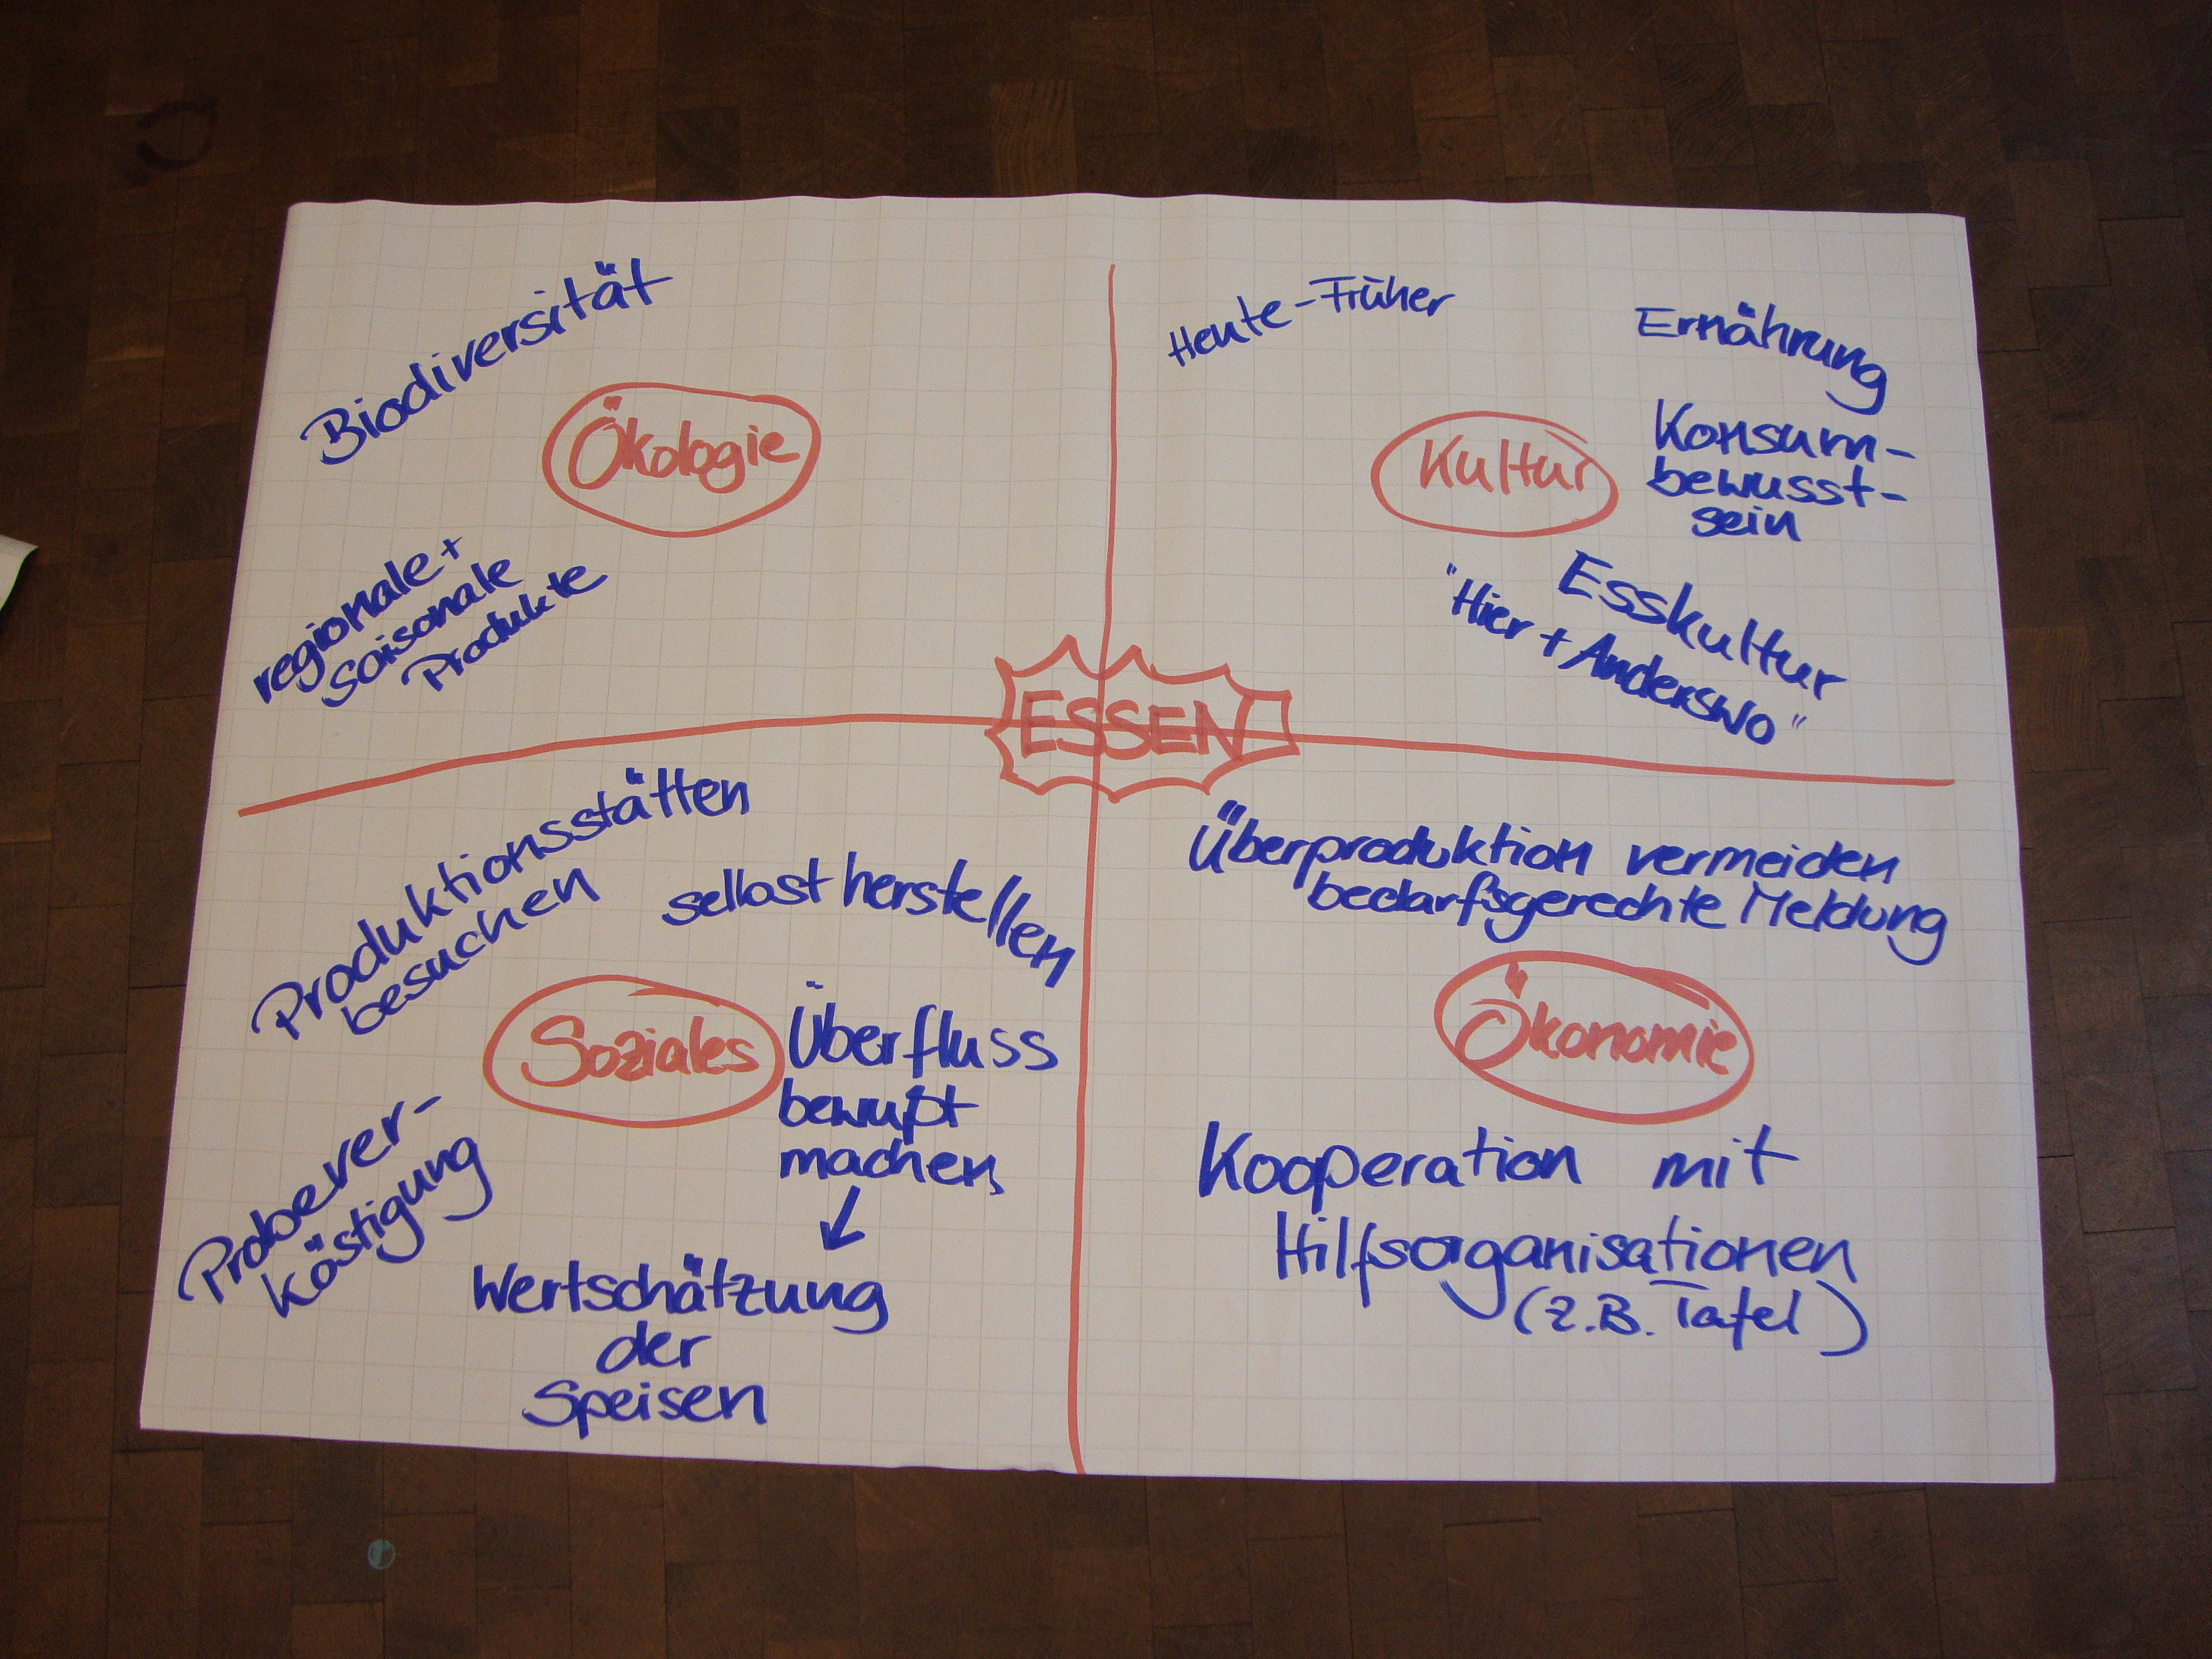 Biodiversität
Ökologie
regionale +
saisonale
Produkte
Heute-Früher
Ernährung
Kultur
Konsum-
bewusst-
sein
Esskultur
"Hier + Anderswo"
ESSEN
Produktionsstätten
besuchen
selbst herstellen
Soziales
Überfluss
bewußt
machen
Probever-
köstigung
Wertschätzung
der
Speisen
Überproduktion vermeiden
bedarfsgerechte Meldung
Ökonomie
Kooperation mit
Hilfsorganisationen
(z.B. Tafel)